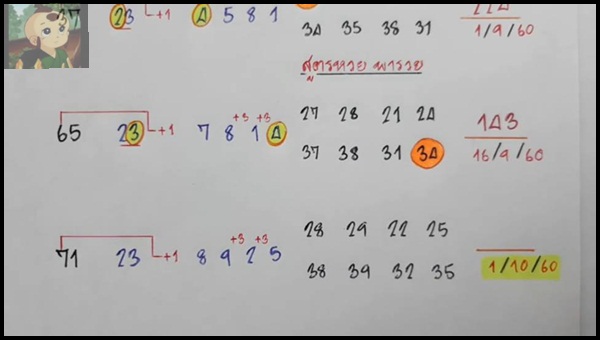 37 23 +1 4 5 8 1
34 35 38 31 1/9/60
สูตรหวย พารวย
27 28 21 24
65 23 +1 7 8 +3 1 +3 4 143
37 38 31 34 16/9/60
28 29 22 25
71 23 +1 8 9 +3 2 +3 5
38 39 32 35 1/10/60